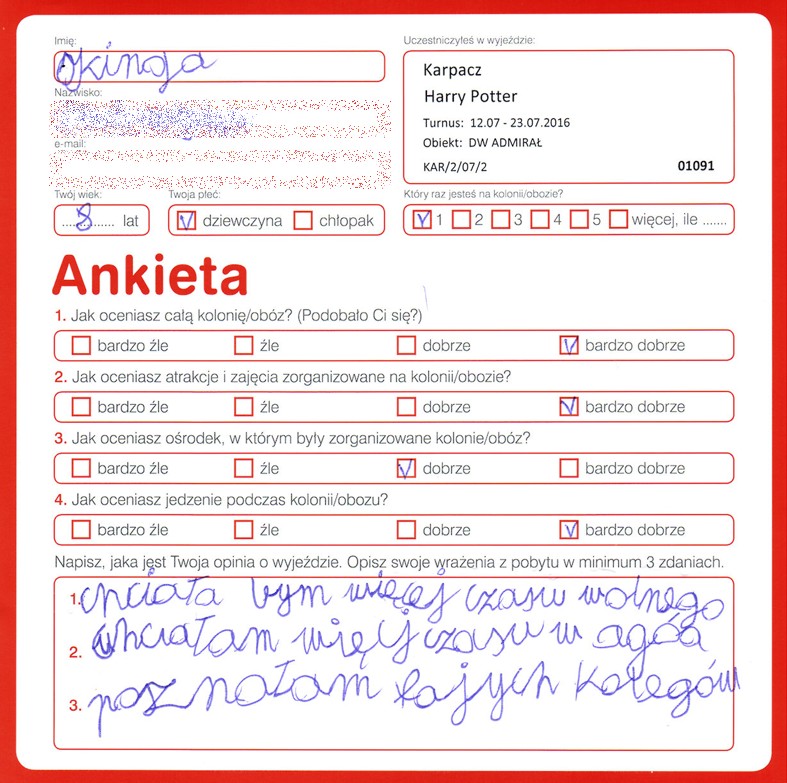 Imię:
Okinga
Uczestniczyłeś w wyjeździe:
Karpacz
Harry Potter
Turnus: 12.07 - 23.07.2016
Obiekt: DW ADMIRAŁ
KAR/2/07/2 01091
Nazwisko:
e-mail:
Twój wiek:
8 lat
Twoja płeć:
dziewczyna chłopak
Który raz jesteś na kolonii/obozie?
1 2 3 4 5 więcej, ile .......
Ankieta
1. Jak oceniasz całą kolonię/obóz? (Podobało Ci się?)
bardzo źle źle dobrze bardzo dobrze
2. Jak oceniasz atrakcje i zajęcia zorganizowane na kolonii/obozie?
bardzo źle źle dobrze bardzo dobrze
3. Jak oceniasz ośrodek, w którym byly zorganizowane kolonie/obóz?
bardzo źle źle dobrze bardzo dobrze
4. Jak oceniasz jedzenie podczas kolonii/obozu?
bardzo źle źle dobrze bardzo dobrze
Napisz, jaka jest Twoja opinia o wyjeździe. Opisz swoje wrażenia z pobytu w minimum 3 zdaniach.
1. chciała bym więcej czasu wolnego
2. chciałam więcj czasu w
3. poznałam fajych kolegów